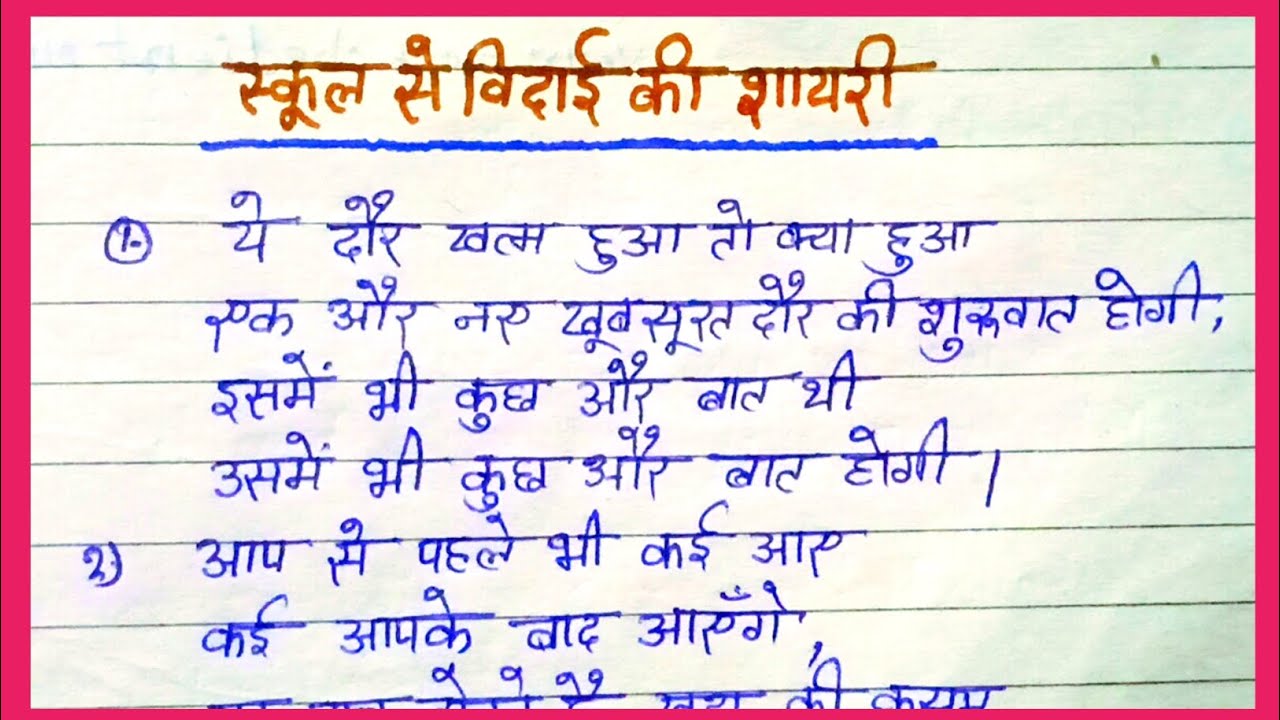 स्कूल से विदाई की शायरी
1. ये दौर खत्म हुआ तो क्या हुआ
एक और नए खूबसूरत दौर की शुरुवात होगी,
इसमें भी कुछ और बात थी
उसमें भी कुछ और बात होगी।
2) आप से पहले भी कई आए
कई आपके बाद आएँगे,
की कसम